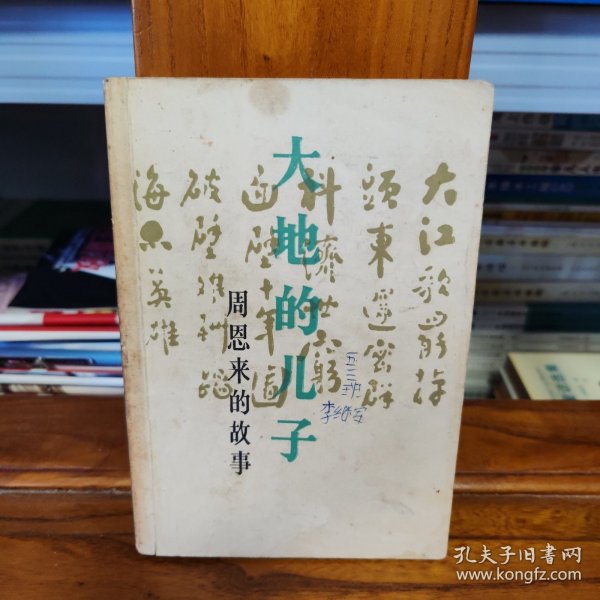 大地的儿子
周恩来的故事
大江歌罷掉
頭東邃密群
科濟世窮
面壁十年圖
破壁難酬蹈
海亦英雄
五三班
李
孔夫子旧书网
www.kongfz.com